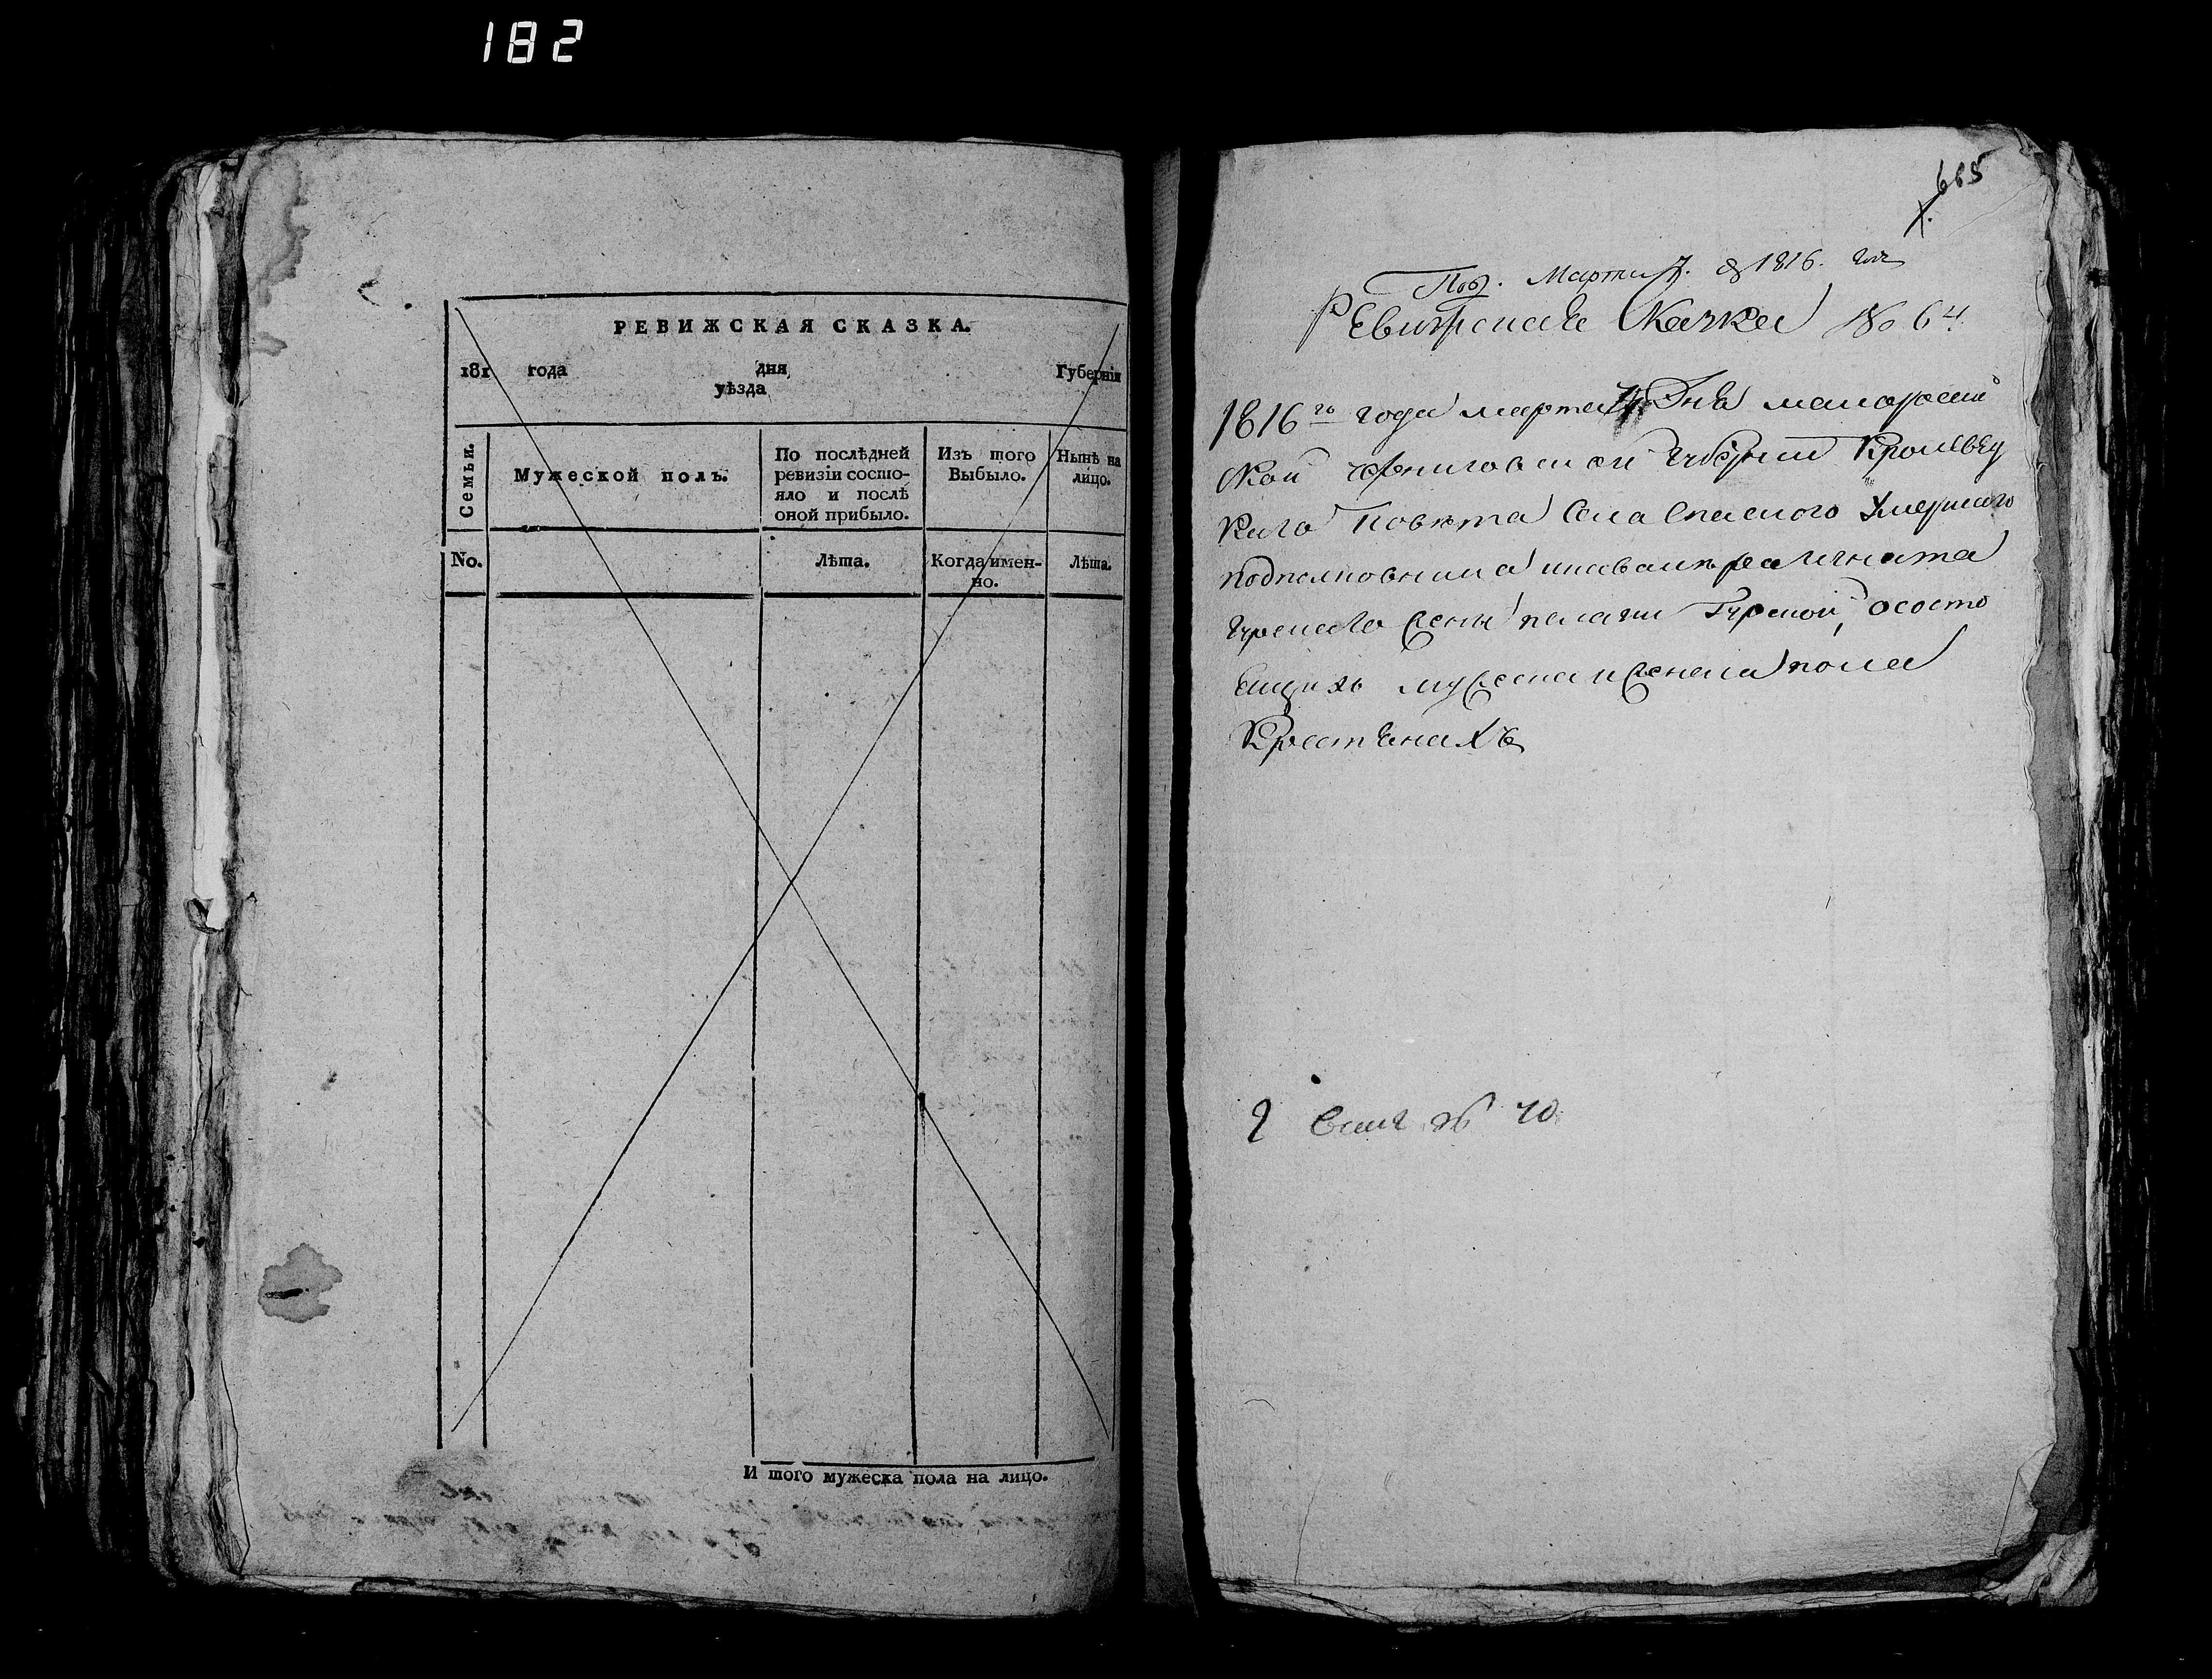 182
РЕВИЖСКАЯ СКАЗКА.
181 года дня Губернія
уѣзда
Семьи.
Мужеской полъ.
По послѣдней
ревизіи состо-
яло и послѣ
оной прибыло.
Изъ того
Выбыло.
Нынѣ на
лицо.
No.
Лѣта.
Когда имен-
но.
Лѣта.
И того мужеска пола на лицо.
685
Под. Марта 7. 1816. года
Ревижская Сказка № 64.
1816го года марта Дня малоросий
ской черниговской губернии Кролевец
каго повѣта села Спаского Умершаго
подполковника
жены пелагии Гурской, о состо
ящихъ мужеска и женска пола
Крестьянахъ
№ 40.